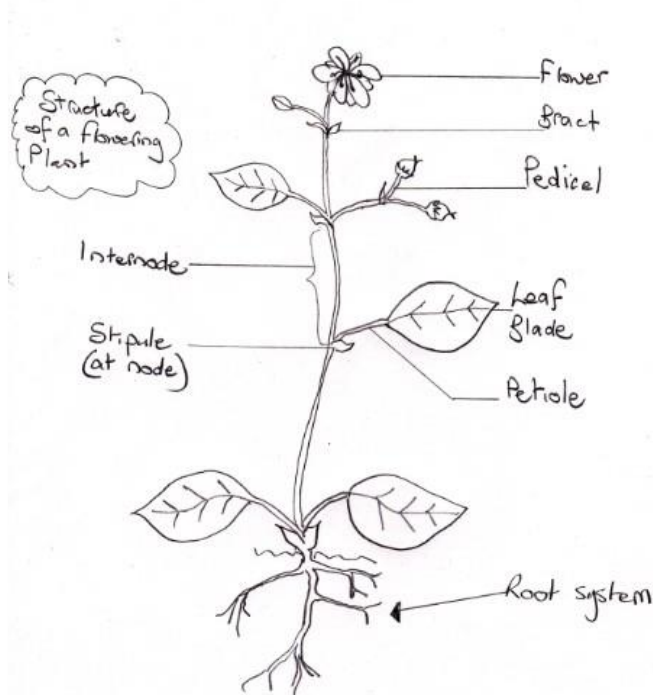 Structure
of a flowering
Plant
Flower
Bract
Pedicel
Internode
Leaf
Blade
Stipule
(at node)
Petiole
Root system